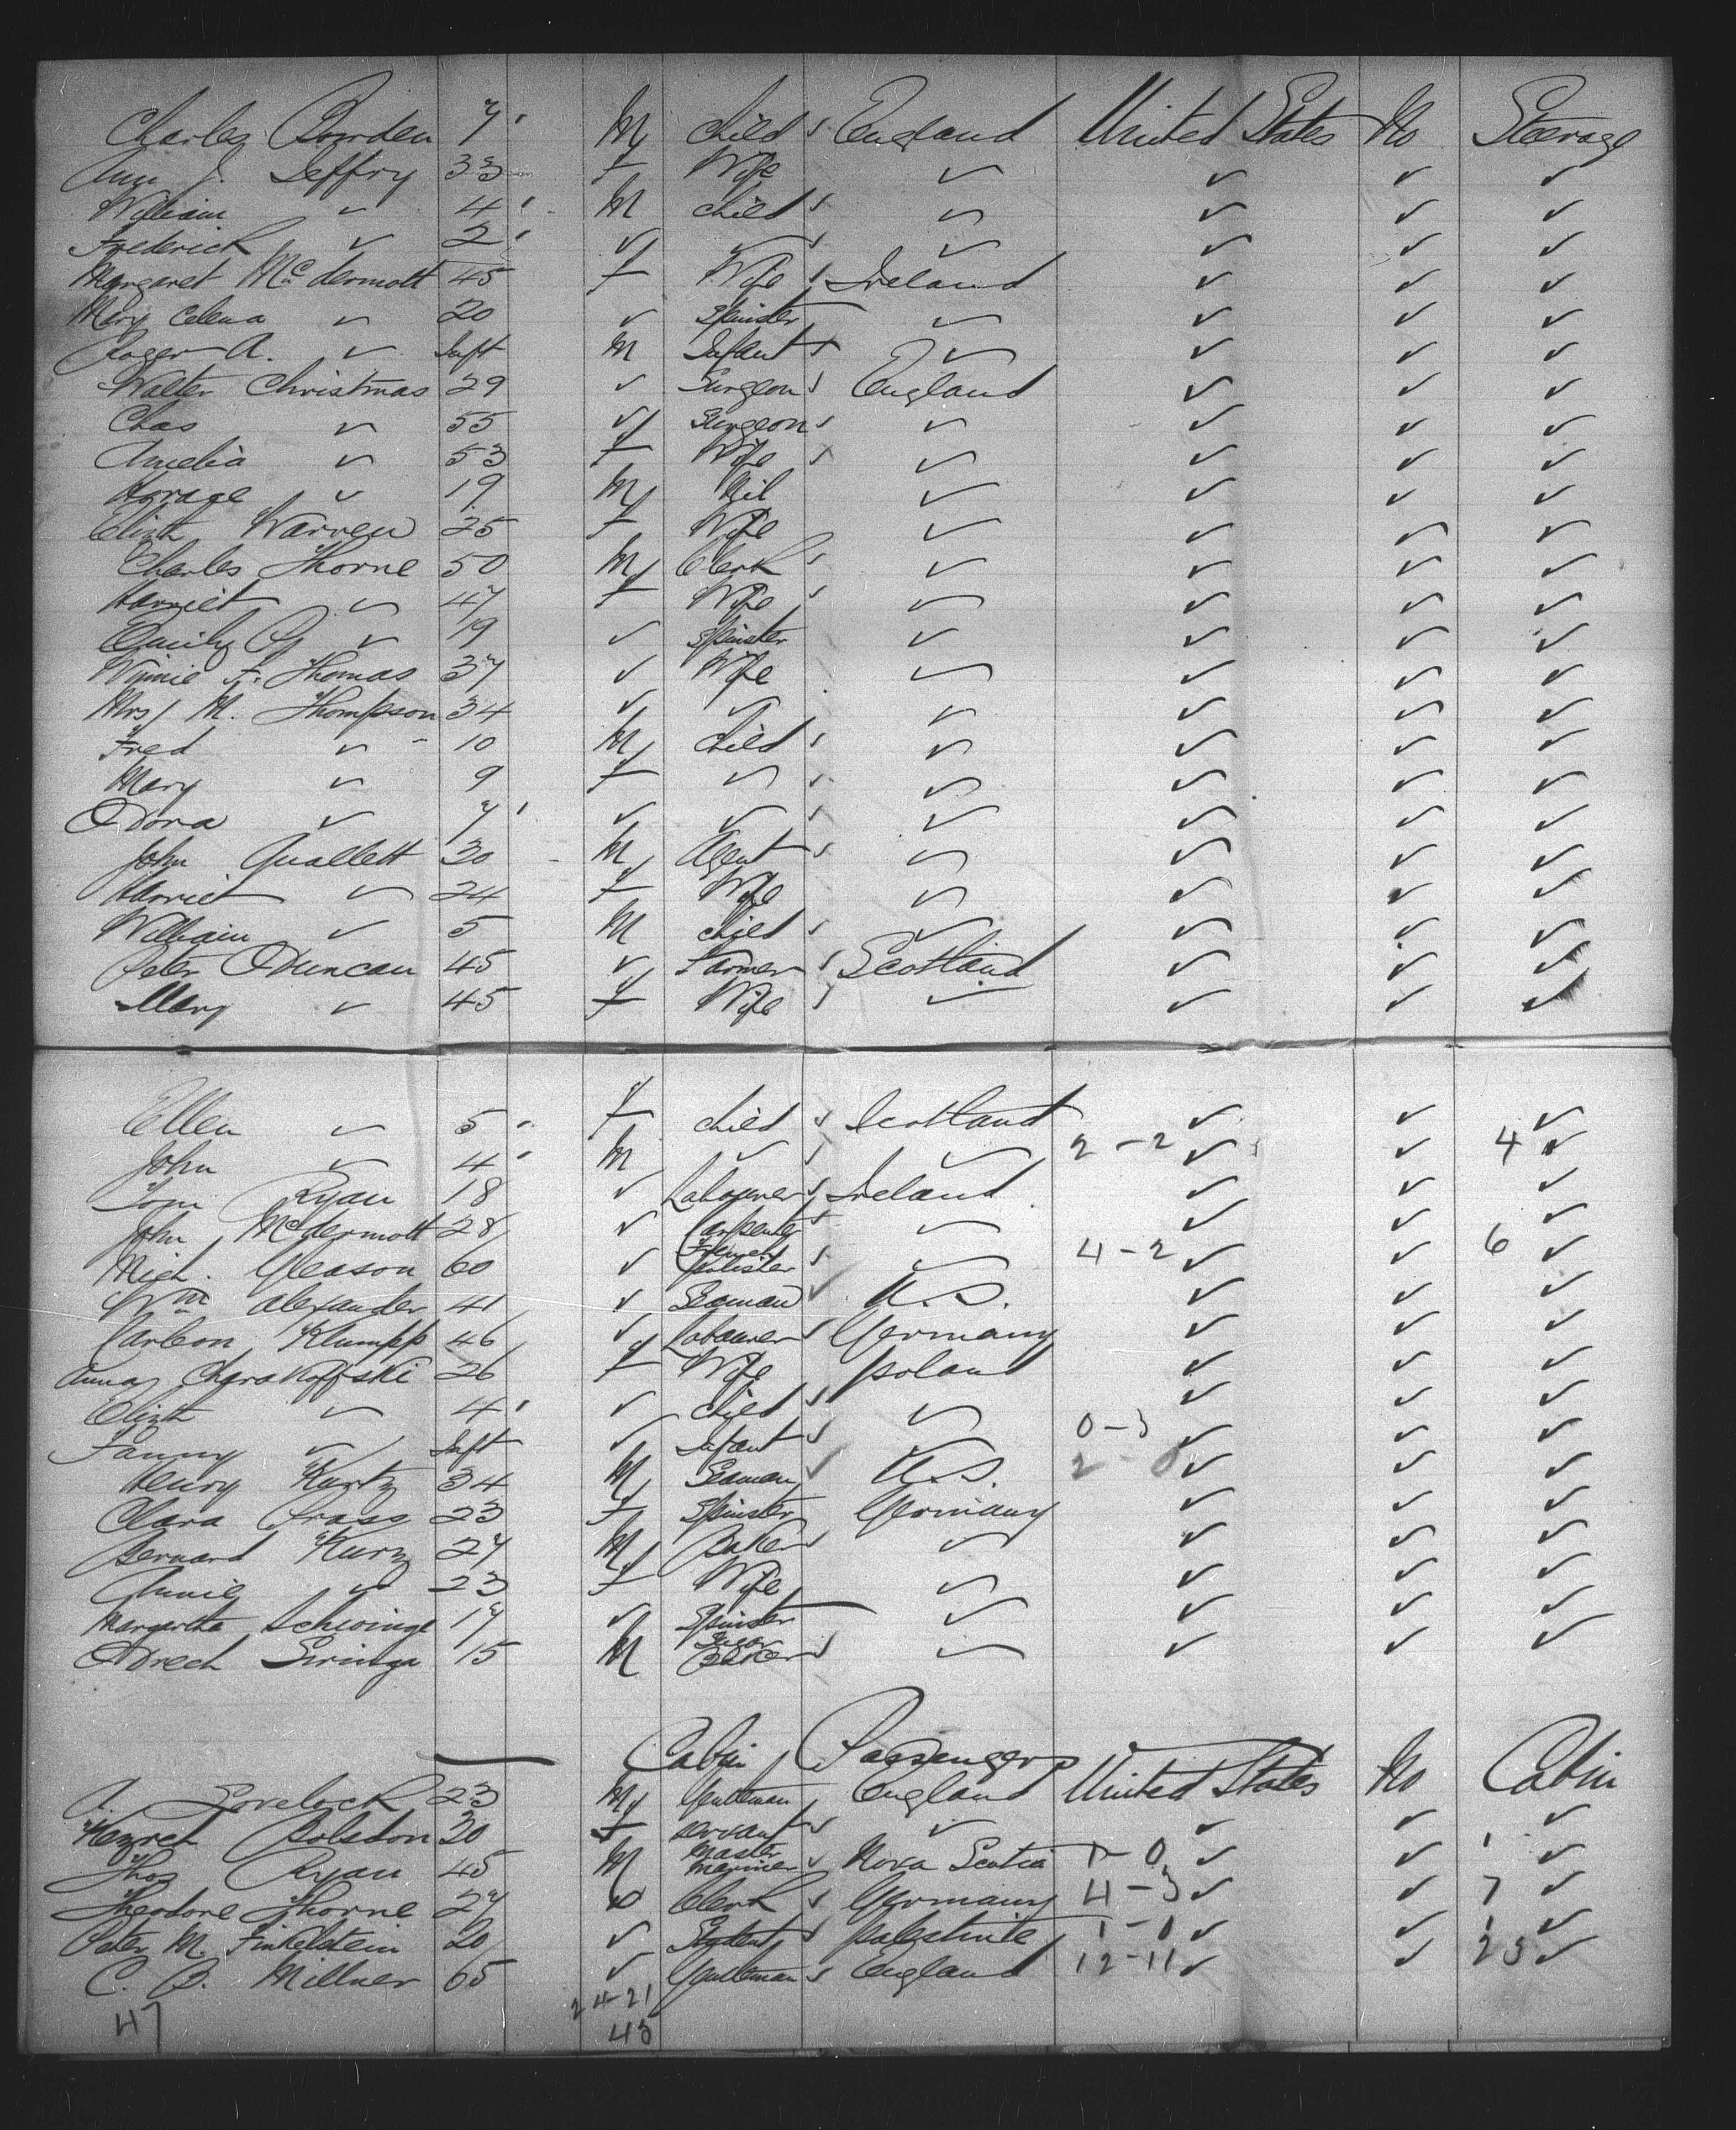 Charles Bowden 7 M child England United States No Steerage
Ann J. Jeffry 33 F Wife ✓ ✓ ✓ ✓
William ✓ 4 M child ✓ ✓ ✓ ✓
Frederick ✓ 2 ✓ ✓ ✓ ✓ ✓ ✓
Margaret McDermott 45 F Wife Ireland ✓ ✓ ✓
Mary Celena ✓ 20 ✓ Spinster ✓ ✓ ✓ ✓
Roger A. ✓ Inft M Infant ✓ ✓ ✓ ✓
Walter Christmas 29 ✓ Surgeon England ✓ ✓ ✓
Chas ✓ 55 ✓ Surgeon ✓ ✓ ✓ ✓
Amelia ✓ 53 F Wife ✓ ✓ ✓ ✓
Horace ✓ 19 M Nil ✓ ✓ ✓ ✓
Elizth Warren 25 F Wife ✓ ✓ ✓ ✓
Charles Thorne 50 M Clerk ✓ ✓ ✓ ✓
Harriet ✓ 47 F Wife ✓ ✓ ✓ ✓
Emily G ✓ 19 ✓ Spinster ✓ ✓ ✓ ✓
Winnie F. Thomas 37 ✓ Wife ✓ ✓ ✓ ✓
Mrs M. Thompson 34 ✓ ✓ ✓ ✓ ✓ ✓
Fred ✓ 10 M child ✓ ✓ ✓ ✓
Mary ✓ 9 F ✓ ✓ ✓ ✓ ✓
Dora ✓ 7 ✓ ✓ ✓ ✓ ✓ ✓
John Quallett 30 M Agent ✓ ✓ ✓ ✓
Harriet ✓ 24 F Wife ✓ ✓ ✓ ✓
William ✓ 5 M child ✓ ✓ ✓ ✓
Peter Duncan 45 ✓ Farmer Scotland ✓ ✓ ✓
Mary ✓ 45 F Wife ✓ ✓ ✓ ✓
Ellen ✓ 5 F child Scotland ✓ ✓ ✓
John ✓ 4 M ✓ ✓ 2-2 ✓ ✓ 4 ✓
Tom Ryan 18 ✓ Labourer Ireland ✓ ✓ ✓
John McDermott 28 ✓ Carpenter ✓ ✓ ✓ ✓
Mich. Gleason 60 ✓ French Polister ✓ 4-2 ✓ ✓ 6 ✓
Wm Alexander 41 ✓ Seaman U.S. ✓ ✓ ✓
Carleon Klumpp 46 ✓ Labourer Germany ✓ ✓ ✓
Anna Charakoffski 26 F Wife Poland ✓ ✓ ✓
Elizth ✓ 4 ✓ child ✓ ✓ ✓ ✓
Fanny ✓ Inft ✓ Infant ✓ 0-3 ✓ ✓ ✓
Henry Kurtz 34 M Seaman U.S. 2-0 ✓ ✓ ✓
Clara Prass 23 F Spinster Germany ✓ ✓ ✓
Bernard Kurz 27 M Baker ✓ ✓ ✓ ✓
Annie ✓ 23 F Wife ✓ ✓ ✓ ✓
Margaretha Schwinge 17 ✓ Spinster ✓ ✓ ✓ ✓
Drech Siringa 15 M Baker ✓ ✓ ✓ ✓
Cabin Passengers
A. Lovelock 23 M Gentleman England United States No Cabin
Margret Rolsdon 30 F servant ✓ ✓ ✓ ✓
Thos Ryan 45 M Master Mariner Nova Scotia 1-0 ✓ ✓ 1 ✓
Theodore Thorne 27 ✓ Clerk Germany 4-3 ✓ ✓ 7 ✓
Peter M. Finkelstein 20 ✓ Student Palestine 1-0 ✓ ✓ 1 ✓
C. B. Millner 65 ✓ Gentleman England 12-11 ✓ ✓ 23 ✓
47 24-21
45